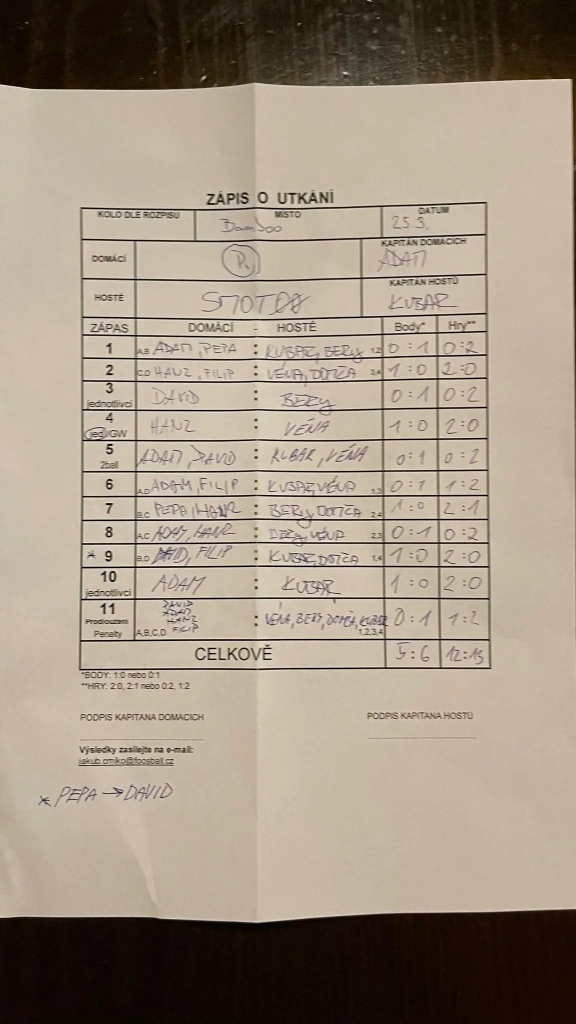 ZÁPIS O UTKÁNÍ
KOLO DLE ROZPISU MÍSTO DATUM
Bamboo 25.3.
DOMÁCÍ P. KAPITÁN DOMÁCÍCH
ADAM
HOSTÉ KAPITÁN HOSTŮ
KUBAR
ZÁPAS DOMÁCÍ - HOSTÉ Body* Hry**
1 A,B ADAM, PEPA : KUBAR, BERY 1,2 0:1 0:2
2 C,D HANZ, FILIP : VÉNA, DOTČA 3,4 1:0 2:0
3 jednotlivci DAVID : BERY 0:1 0:2
4 jed/GW HANZ : VÉNA 1:0 2:0
5 2ball ADAM, DAVID : KUBAR, VÉNA 0:1 0:2
6 A,D ADAM, FILIP : KUBAR, VÉNA 1,3 0:1 1:2
7 B,C PEPA, HANZ : BERY, DOTČA 2,4 1:0 2:1
8 A,C ADAM, HANZ : BERY, VÉNA 2,3 0:1 0:2
* 9 B,D DAVID, FILIP : KUBAR, DOTČA 1,4 1:0 2:0
10 jednotlivci ADAM : KUBAR 1:0 2:0
11 Prodloužení Penalty A,B,C,D DAVID ADAM HANZ FILIP : VÉNA, BERY, DOTČA, KUBAR 1,2,3,4 0:1 1:2
CELKOVĚ 5:6 12:13
*BODY: 1:0 nebo 0:1
**HRY: 2:0, 2:1 nebo 0:2, 1:2
PODPIS KAPITÁNA DOMÁCÍCH PODPIS KAPITÁNA HOSTŮ
Výsledky zasílejte na e-mail:
jakub.cmiko@foosball.cz
* PEPA → DAVID